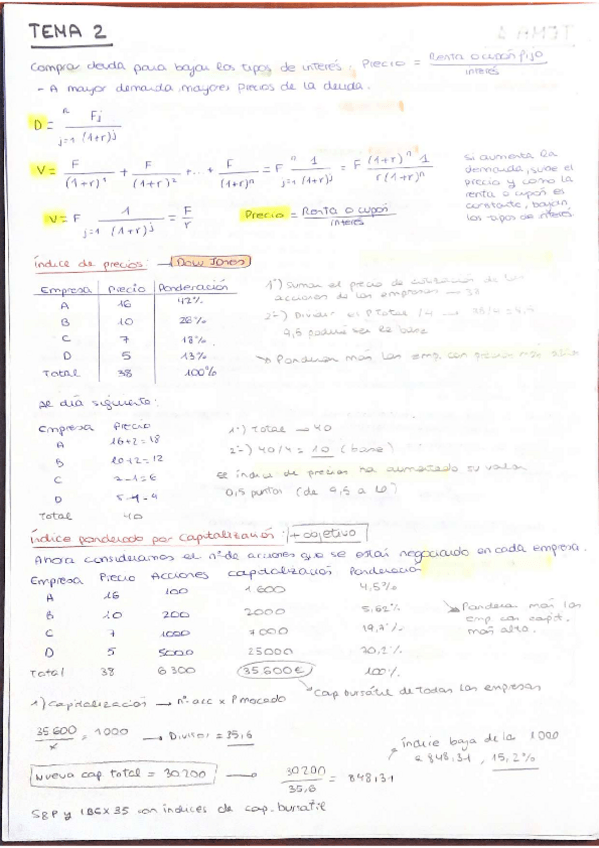 TEMA 2
Comprar deuda para bajar los tipos de interés; Precio = Renta o cupón fijo / interés
- A mayor demanda, mayores precios de la deuda.
D = n Fj / j=1 (1+r)^j
V = F / (1+r)^1 + F / (1+r)^2 + ... + F / (1+r)^n = F n 1 / j=1 (1+r)^j = F (1+r)^n 1 / r(1+r)^n
si aumenta la
demanda, sube el
precio y como la
renta o cupón es
constante, bajan
los tipos de interés
V = F 1 / j=1 (1+r)^j = F / r Precio = Renta o cupón / interés
índice de precios: → Dow Jones
Empresa Precio Ponderación
A 16 42%
B 10 26%
C 7 18%
D 5 13%
Total 38 100%
1º) Sumar el precio de cotización de las
acciones de las empresas → 38
2º) Dividir el P Total / 4 → 38/4 = 9,5
9,5 podría ser la base
→ Ponderan más las emp. con precios más altos
Al día siguiente:
Empresa Precio
A 16+2=18
B 10+2=12
C 7-1=6
D 5-1=4
Total 40
1º) Total → 40
2º) 40/4 = 10 (base)
el índice de precios ha aumentado su valor
0,5 puntos (de 9,5 a 10)
índice ponderado por capitalización: + objetivo
Ahora consideramos el nº de acciones que se están negociando en cada empresa.
Empresa Precio Acciones capitalización Ponderación
A 16 100 1600 4,5%
B 10 200 2000 5,62%
C 7 1000 7000 19,7%
D 5 5000 25000 70,2%
Total 38 6300 35.600€ 100%
→ Ponderan más las
emp con capit.
más alta.
1) Capitalización → nº acc x P mercado
→ Cap bursátil de todas las empresas
35600 / x = 1000 → Divisor = 35,6
índice baja de la 1000
a 848,31, 15,2%
Nueva cap total = 30200 → 30200 / 35,6 = 848,31
S&P y IBEX 35 son índices de cap. bursátil